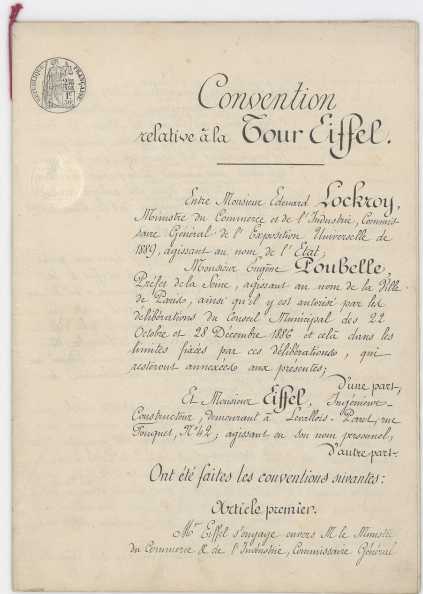 RÉPUBLIQUE FRANÇAISE
Convention
relative à la Tour Eiffel.
Entre Monsieur Edouard Lockroy,
Ministre du Commerce et de l'Industrie, Commis-
saire Général de l'Exposition Universelle de
1889, agissant au nom de l'Etat,
Monsieur Eugène Poubelle,
Préfet de la Seine, agissant au nom de la Ville
de Paris, ainsi qu'il y est autorisé par les
délibérations du Conseil Municipal des 22
Octobre et 28 Décembre 1886 et celà dans les
limites fixées par ces délibérations, qui
resteront annexées aux présentes;
D'une part,
Et Monsieur Eiffel, Ingénieur-
Constructeur, demeurant à Levallois-Perret, rue
Fouquet, N°42; agissant en son nom personnel,
D'autre part.
Ont été faites les conventions suivantes:
Article premier.
Mr Eiffel s'engage envers M. le Ministre
du Commerce & de l'Industrie, Commissaire Général